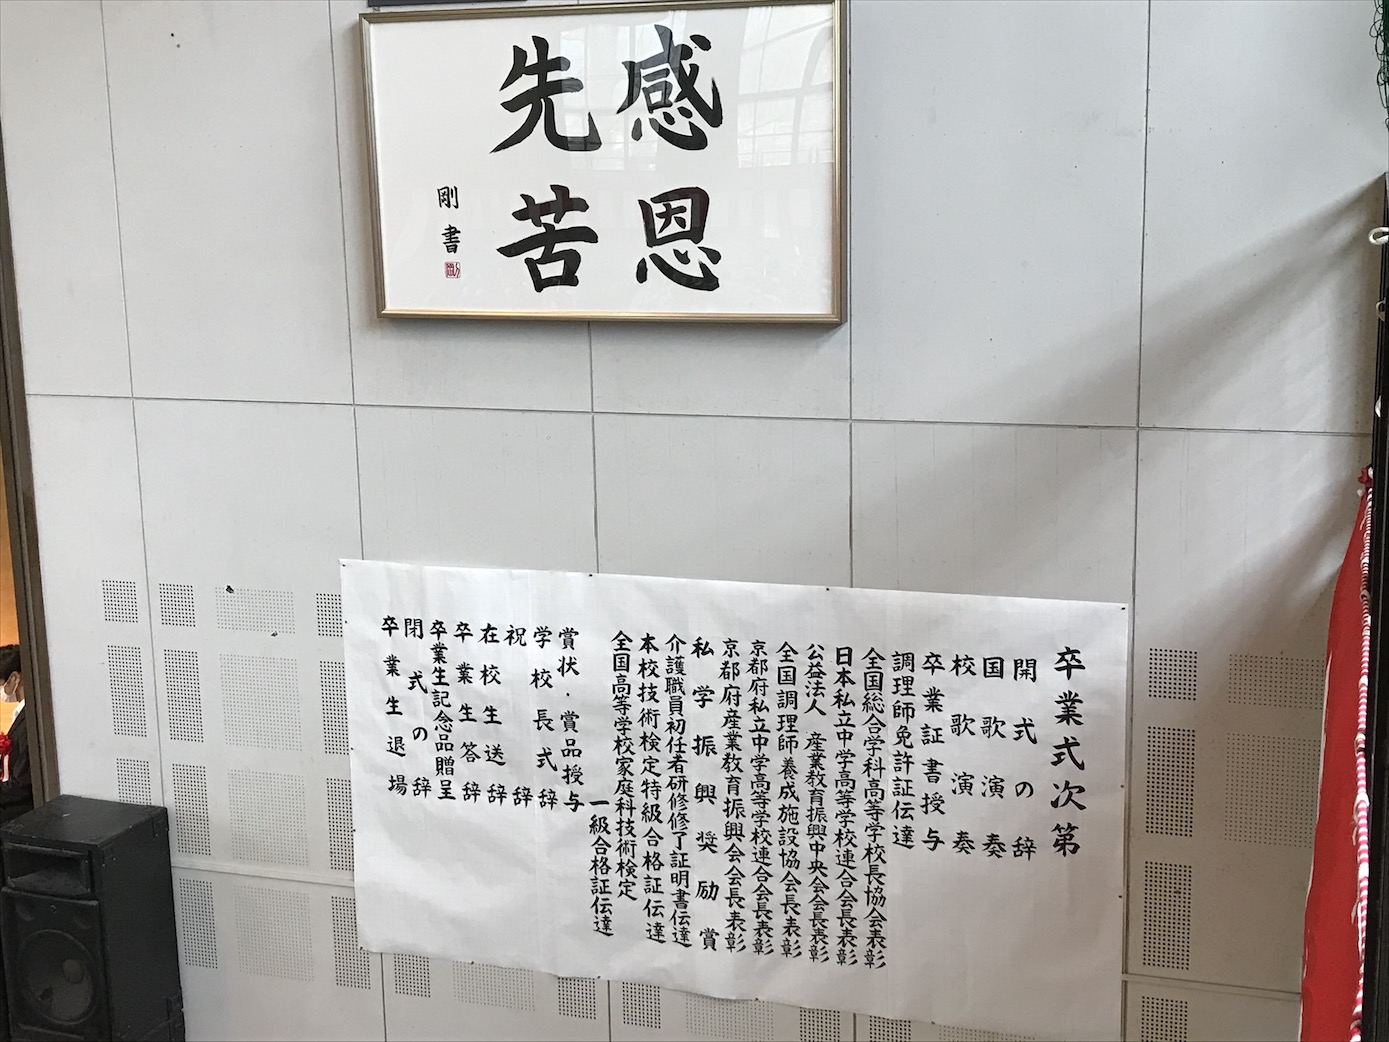 感恩
先苦
剛書
卒業式次第
開式の辞
国歌演奏
校歌演奏
卒業証書授与
調理師免許証伝達
全国総合学科高等学校長協会表彰
日本私立中学高等学校連合会長表彰
公益法人 産業教育振興中央会会長表彰
全国調理師養成施設協会長表彰
京都府私立中学高等学校連合会会長表彰
京都府産業教育振興会会長表彰
私学振興奨励賞
介護職員初任者研修修了証明書伝達
本校技術検定特級合格証伝達
全国高等学校家庭科技術検定
一級合格証伝達
賞状・賞品授与
学校長式辞
祝辞
在校生送辞
卒業生答辞
卒業生記念品贈呈
閉式の辞
卒業生退場